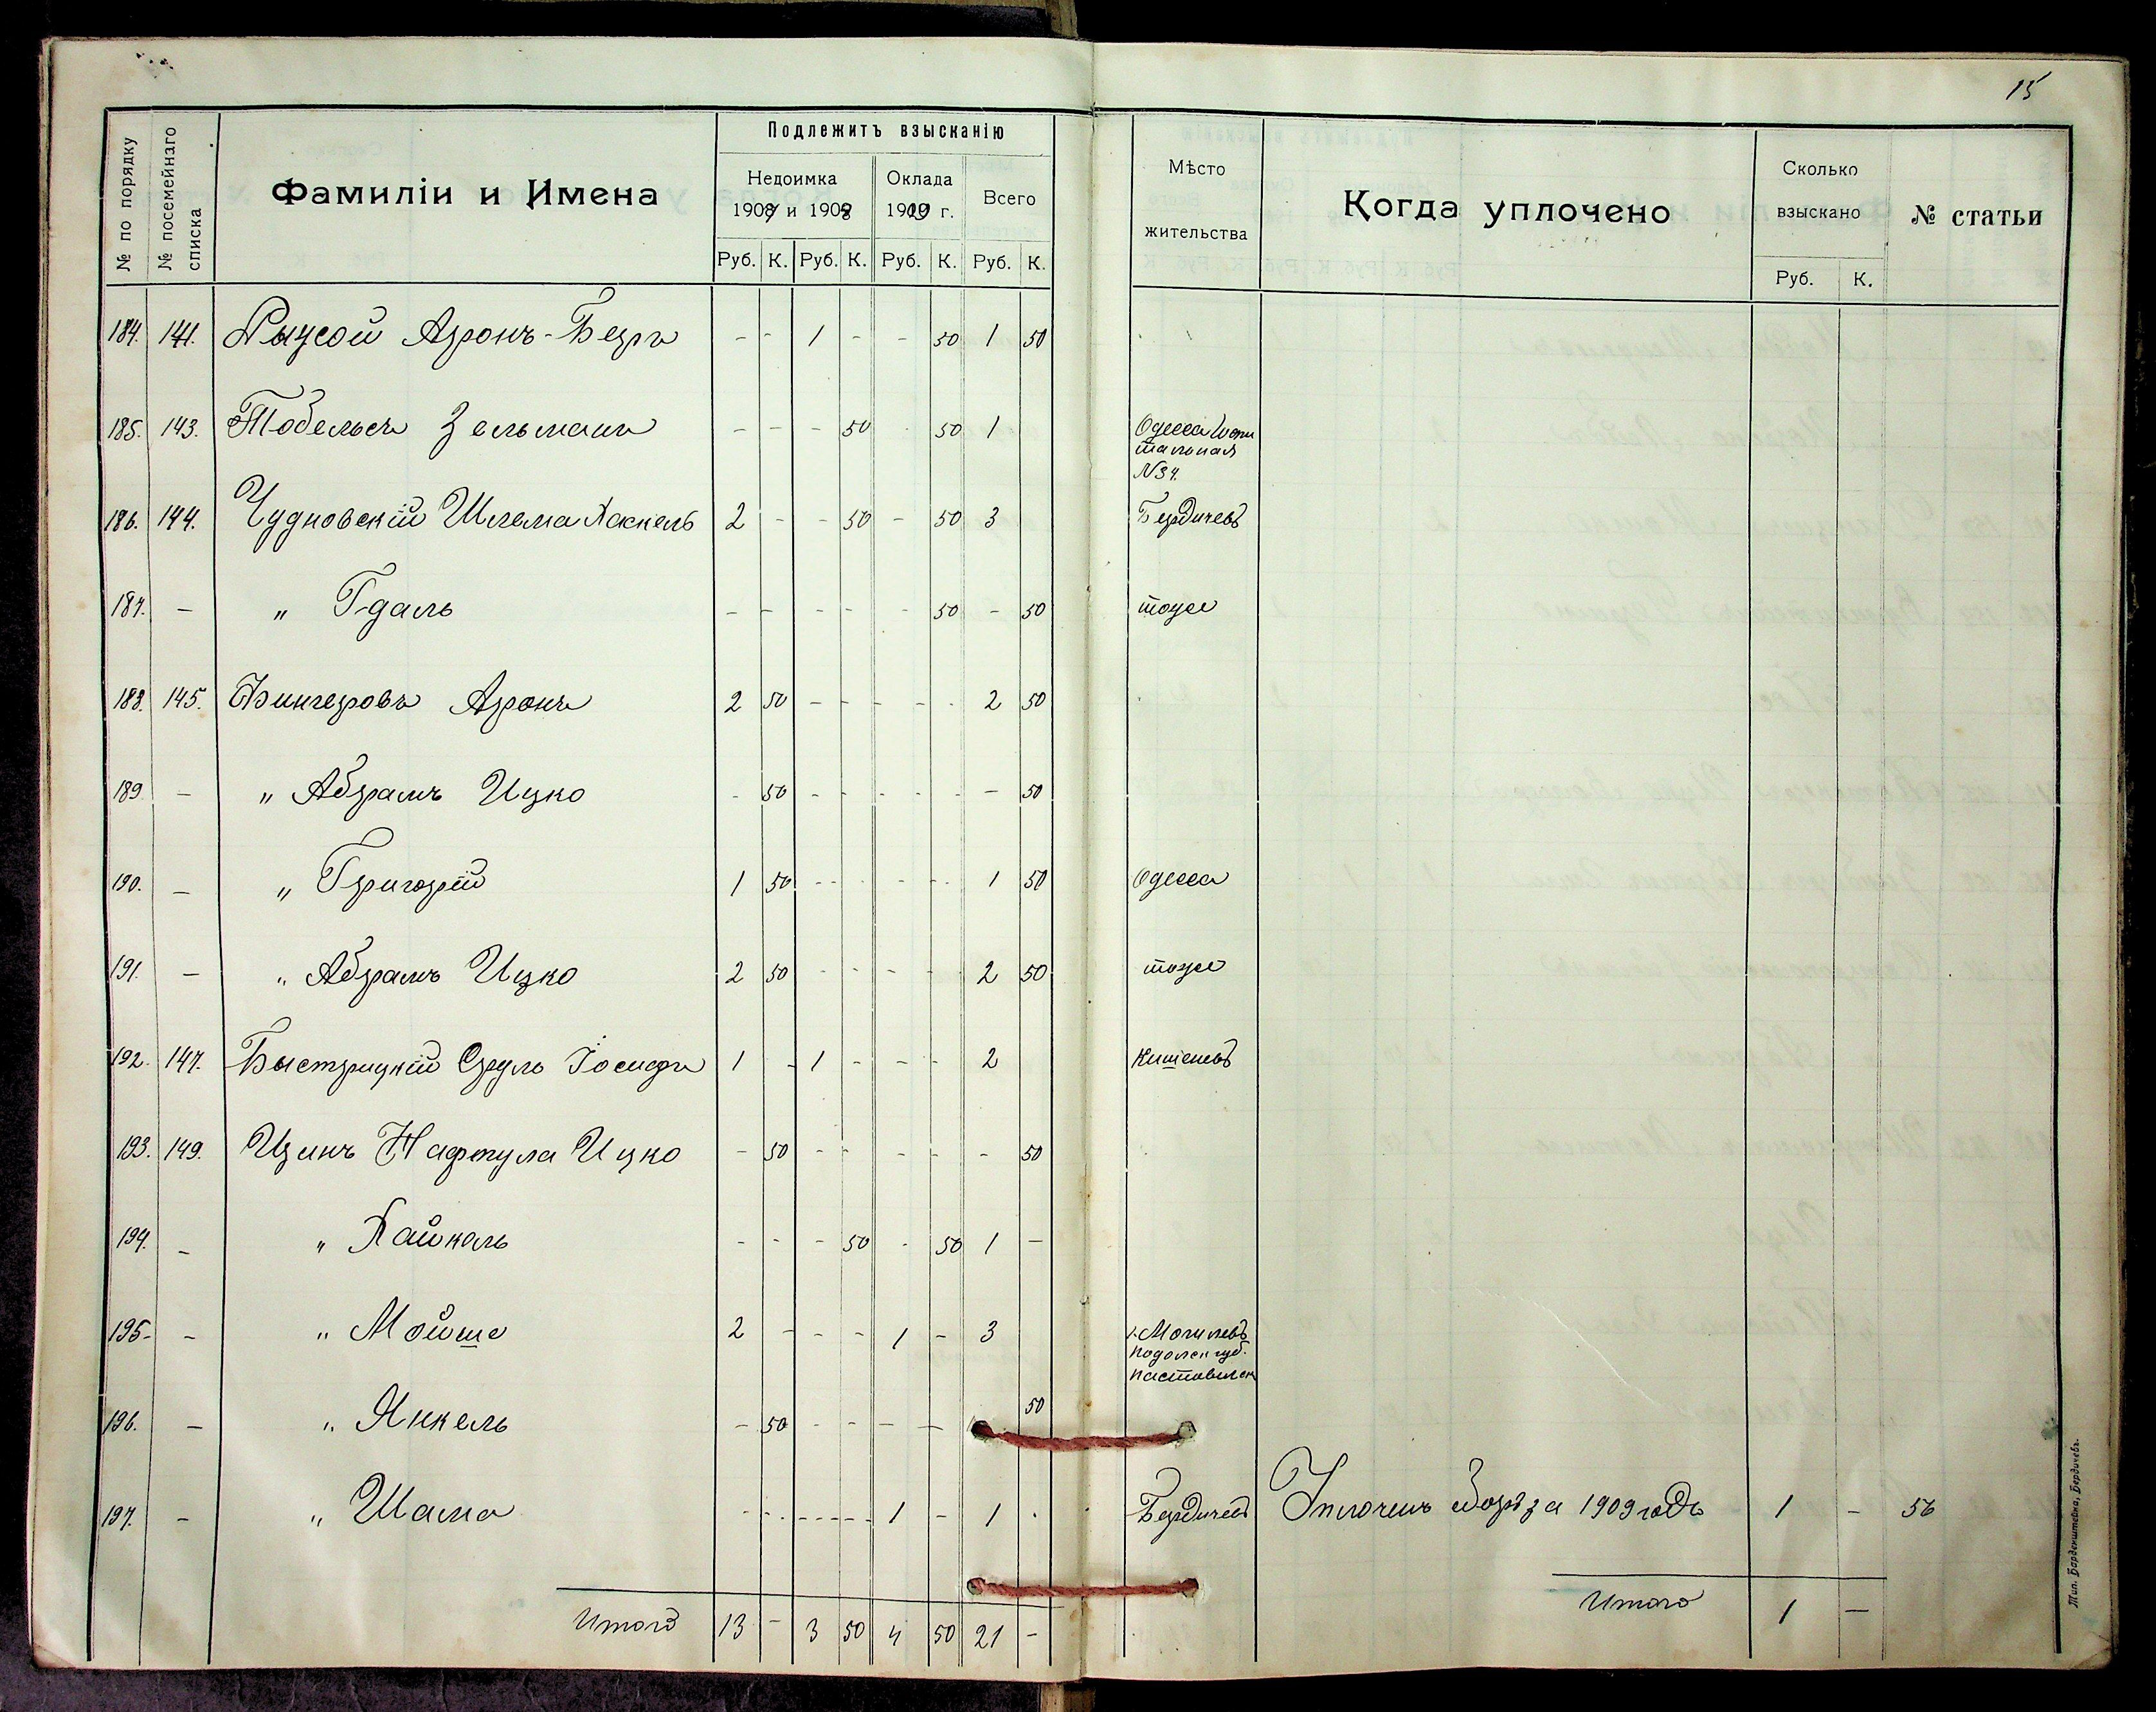 15
№ по порядку
№ посемейнаго списка
Фамиліи и Имена
Подлежитъ взысканію
Недоимка Оклада Всего
1907 и 1908 1909 г.
Руб. К. Руб. К. Руб. К. Руб. К.
Мѣсто жительства
Когда уплочено
Сколько взыскано
Руб. К.
№ статьи
184. 141. Аронъ-Беръ - - 1 - - 50 1 50
185. 143. Тобельсъ Зельманъ - - - 50 - 50 1 Одесса
№34.
186. 144. Чудновскій Шлема Хаскель 2 - - 50 - 50 3 Бердичевъ
187. - " Гдаль - - - - - 50 - 50 тоже
188. 145. Винчеровъ Аронъ 2 50 - - - - 2 50
189 - " Абрамъ Ицко - 50 - - - - - 50
190. - " Григорій 1 50 - - - - 1 50 Одесса
191. - " Абрамъ Ицко 2 50 - - - - 2 50 тоже
192. 147. Быстрицкій Сруль Іосифъ 1 - 1 - - - 2 Кишеневъ
193. 149. Цинъ Нафтула Ицко - 50 - - - - - 50
194. - " Хайкель - - - 50 - 50 1 -
195 - " Мойше 2 - - - 1 - 3 г. Могилевъ
Подолск губ.
196. - " Янкель - 50 - - - - 50
197. - " Шама - - - - 1 - 1 . Бердичевъ Уплоченъ сборъ за 1909 годъ 1 - 56
Итого 13 - 3 50 4 50 21 -
Итого 1 -
Тип. Барденштейна, Бердичевъ.